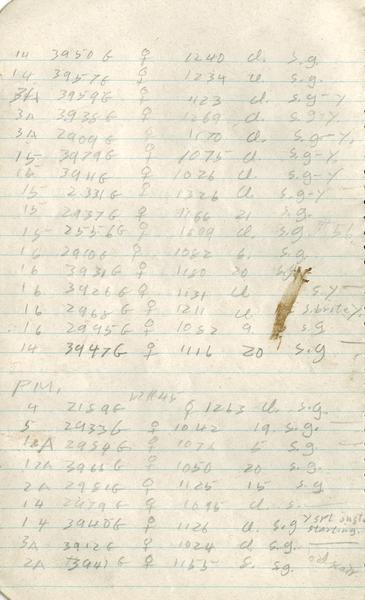 14 3950G ♀ 1240 d. s.g.
14 3957G ♀ 1234 d. s.g.
3A 3959G ♀ 1123 d. s.g-Y
3A 3938G ♀ 1269 d. s.g-Y.
3A 2909G ♀ 1170 d. s.g-Y.
15 3979G ♀ 1075 d. s.g-Y.
16 3911G ♀ 1026 d. s.g-Y.
15 2331G ♀ 1326 d. s.g-Y
15 2937G ♀ 1166 21 s.g.
15 2556G ♀ d. s.g.
16 2910G ♀ 1082 6. s.g.
16 3931G ♀ 1180 20 s.g.
16 3926G ♀ 1131 d s.Y-
16 2968G ♀ 1211 d s.briteY.
16 2995G ♀ 1082 9. s g
14 3947G ♀ 1116 20 s.g
P.M.
4 2159G ♀ 1263 d. s.g.
5 2933G ♀ 1042 19. s.g.
12A 2954G ♀ 1076 5 s.g
12A 3966G ♀ 1050 20 s.g.
2A 2951G ♀ 1125 15 s.g
14 2979G ♀ 1095 d. s.
14 3940G ♀ 1126 d. s.g Y spt
starting.
3A 3912G ♀ 1024 d s.g.
2A 3941G ♀ 1155 s. s.g. odd